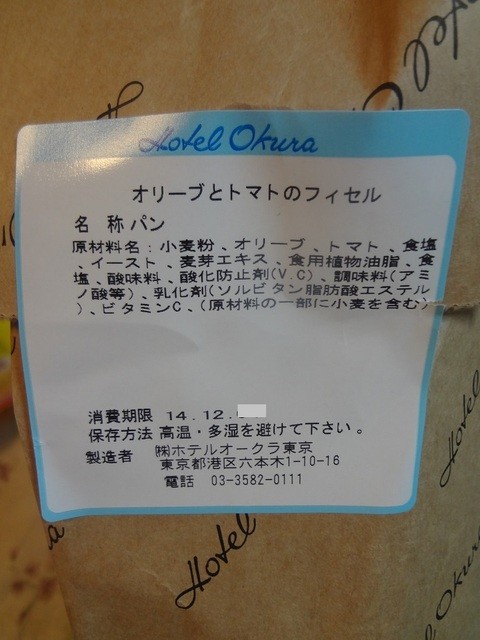 Hotel Okura
オリーブとトマトのフィセル
名 称 パン
原材料名：小麦粉、オリーブ、トマト、食塩
、イースト、麦芽エキス、食用植物油脂、食
塩、酸味料、酸化防止剤(V.C)、調味料(アミ
ノ酸等)、乳化剤(ソルビタン脂肪酸エステル
)、ビタミンC、(原材料の一部に小麦を含む)
消費期限 14.12.
保存方法 高温・多湿を避けて下さい。
製造者 ㈱ホテルオークラ東京
東京都港区六本木1-10-16
電話 03-3582-0111
Hotel
Hotel
Okura